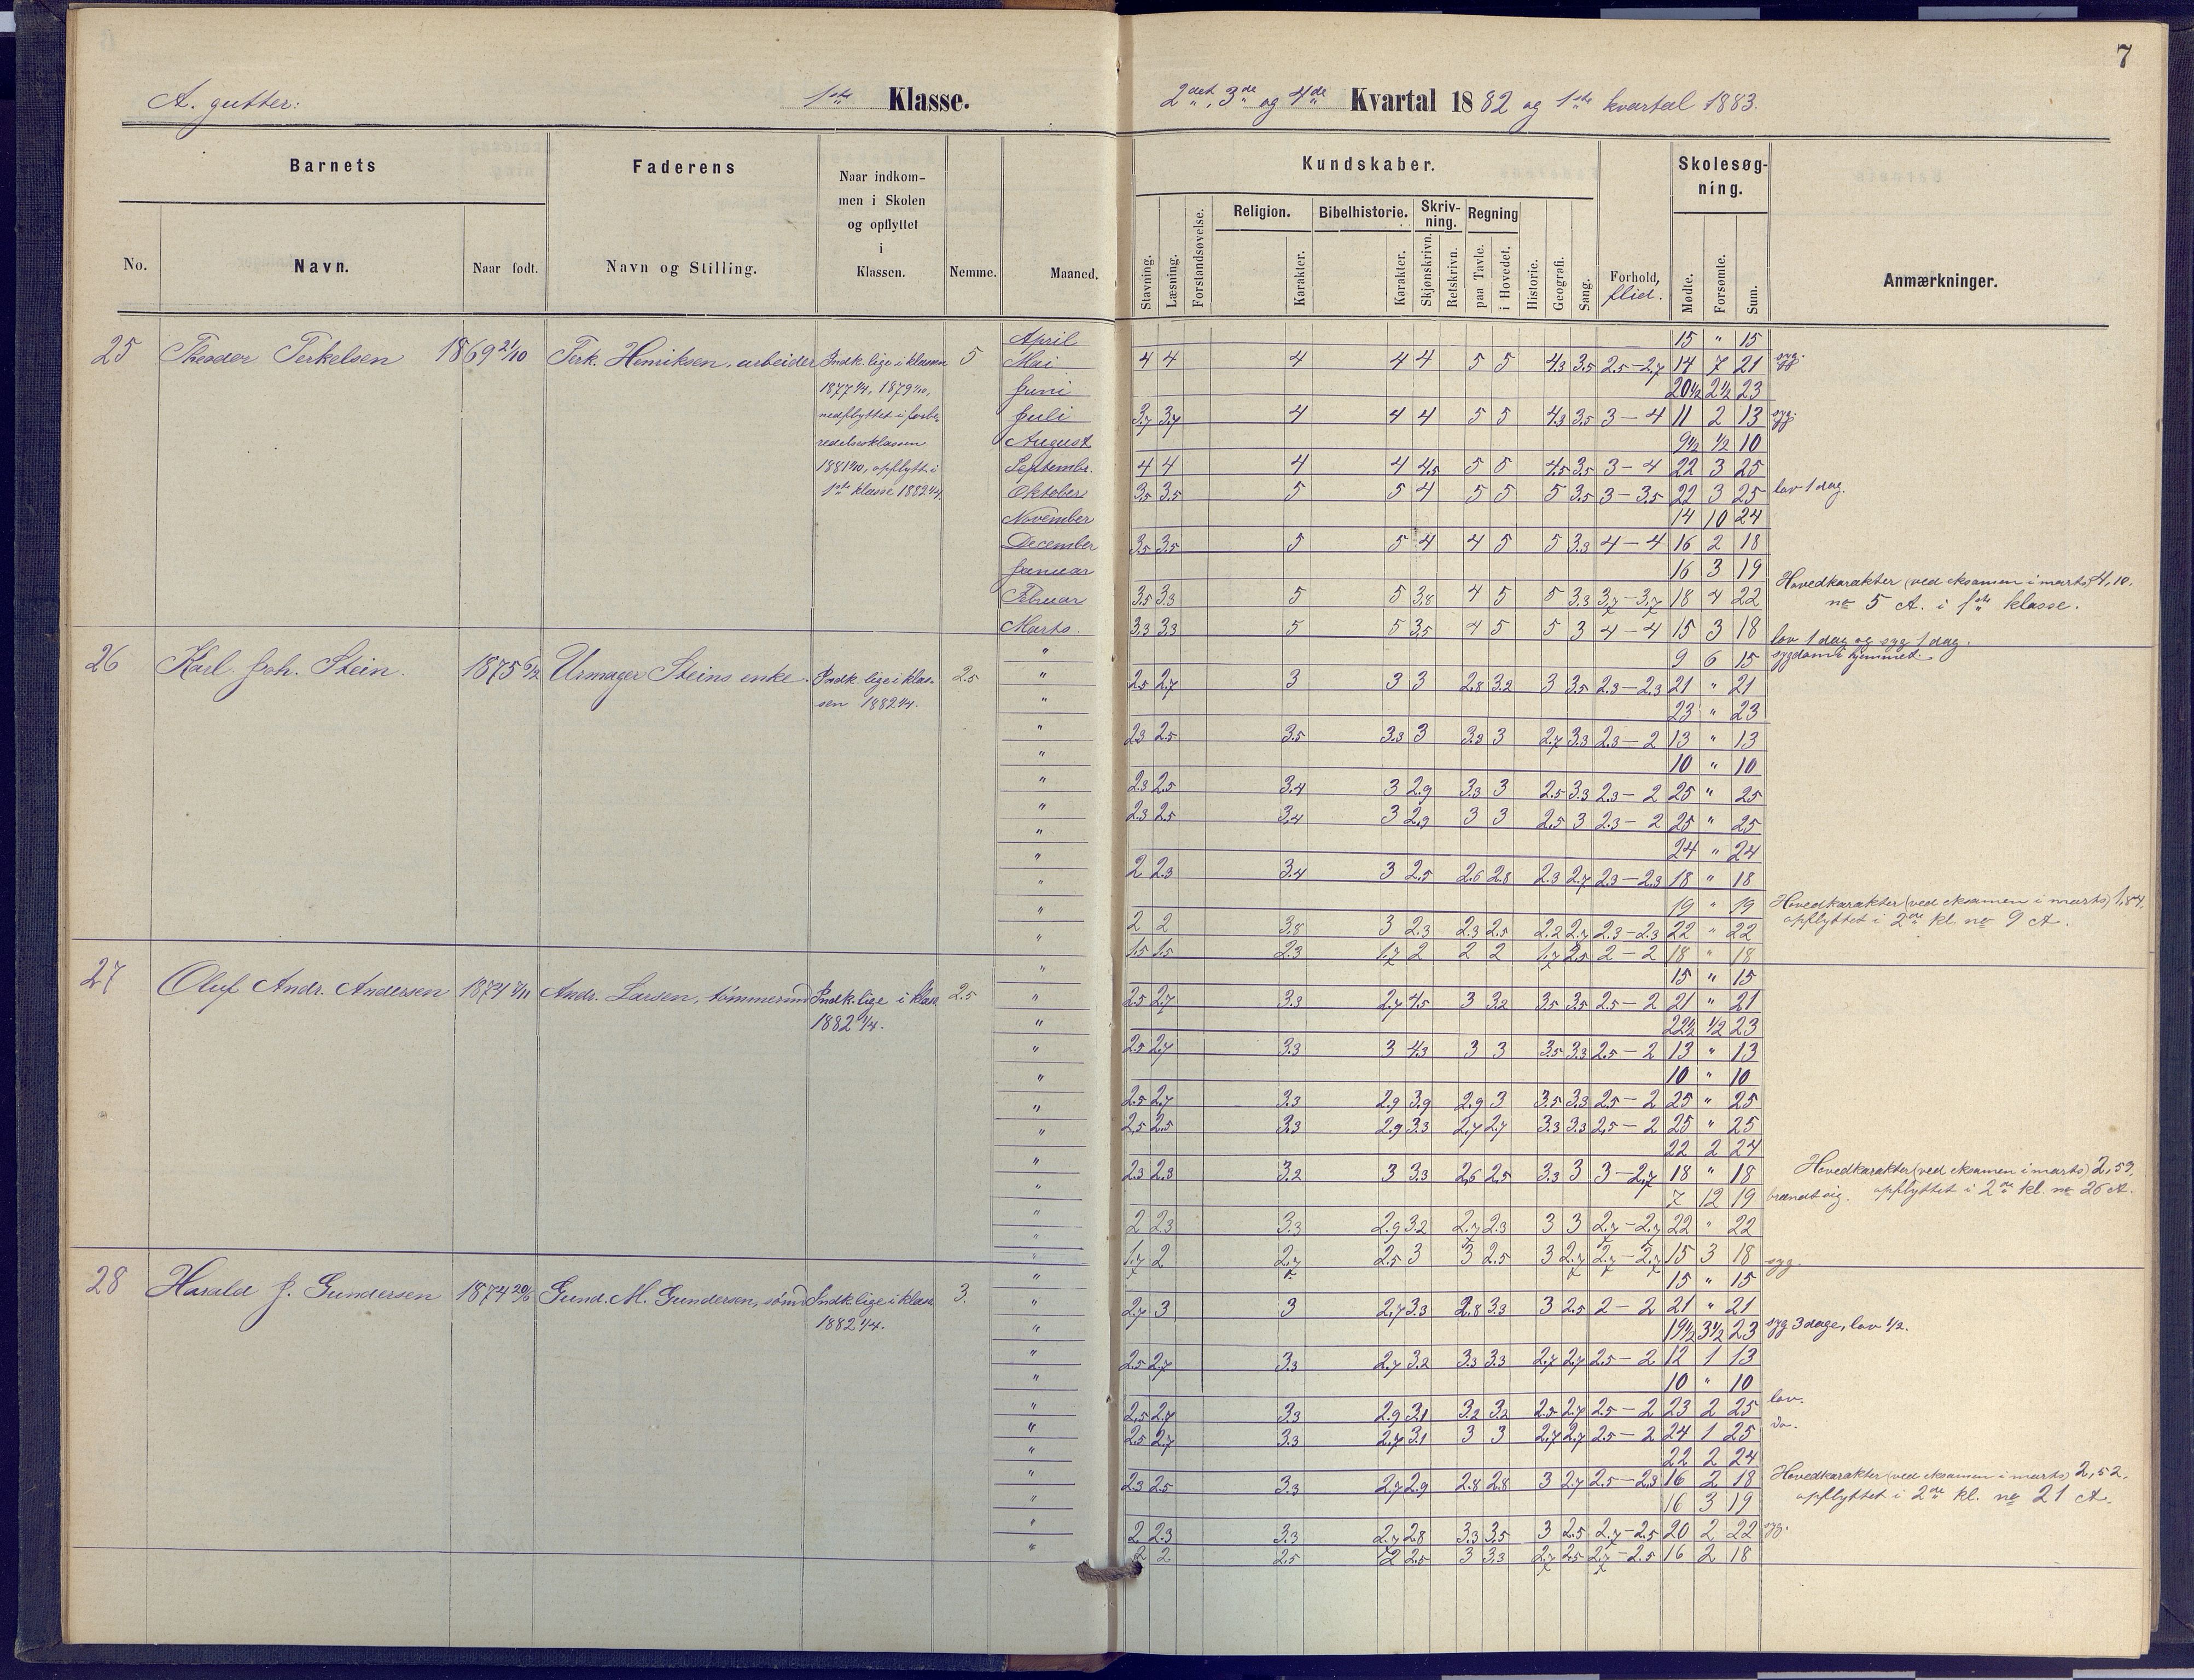 7
A. gutter: 1ste Klasse. 2det, 3de og 4de Kvartal 1882 og 1ste kvartal 1883.
Barnets Faderens Naar indkom- men i Skolen og opflyttet i Klassen. Nemme. Maaned.
No. Navn. Naar født. Navn og Stilling.
Kundskaber. Skolesøg- ning. Anmærkninger.
Stavning. Læsning. Forstandsøvelse. Religion. Karakter. Bibelhistorie. Karakter. Skriv- ning. Skjønskrivn. Retskrivn. Regning paa Tavle. i Hovedet. Historie. Geografi. Sang. Forhold, flid. Mødte. Forsømte. Sum.
25 Theodor Terkelsen 1869 21/10 Terk. Henriksen, arbeider Indk. lige i klassen 5
1877 1/4, 1879 1/10,
nedflyttet i forbe-
redelsesklassen
1881 1/10, opflytt. i
1ste klasse 1882 1/4.
April 15 " 15
Mai 4 4 4 4 4 5 5 4.3 3.5 2.5-2.7 14 7 21 syg.
Juni 20½ 2½ 23
Juli 3.7 3.7 4 4 4 5 5 4.3 3.5 3-4 11 2 13 syg.
August 9½ ½ 10
Septembr. 4 4 4 4 4.5 5 5 4.5 3.5 3-4 22 3 25
Oktober 3.5 3.5 5 5 4 5 5 5 3.5 3-3.5 22 3 25 lov 1 dag.
November 14 10 24
December 3.5 3.5 5 5 4 4 5 5 3.3 4-4 16 2 18
Januar 16 3 19 Hovedkarakter (ved eksamen i marts) 4,10.
Februar 3.5 3.3 5 5 3.8 4 5 5 3.3 3.7-3.7 18 4 22 no 5 A. i 1ste klasse.
Marts 3.3 3.3 5 5 3.5 4 5 5 3 4-4 15 3 18 lov 1 dag og syg 1 dag.
26 Karl Joh. Stein. 1875 Urmager Steins enke. Indk. lige i klas- 2.5
sen 1882 1/4.
" 9 6 15 sygdom i hjemmet.
" 2.5 2.7 3 3 3 2.8 3.2 3 3.5 2.3-2.3 21 " 21
" 23 " 23
" 2.3 2.5 3.5 3.3 3 3.3 3 2.7 3.3 2.3-2 13 " 13
" 10 " 10
" 2.3 2.5 3.4 3 2.9 3.3 3 2.5 3.3 2.3-2 25 " 25
" 2.3 2.5 3.4 3 2.9 3 3 2.5 3 2.3-2 25 " 25
" 24 " 24
" 2 2.3 3.4 3 2.5 2.6 2.8 2.3 2.7 2.3-2.3 18 " 18
" 19 " 19 Hovedkarakter (ved eksamen i marts) 1,84,
" 2 2 3.8 3 2.3 2.3 2.5 2.2 2.7 2.3-2.3 22 " 22 opflyttet i 2de kl. no 9 A.
" 1.5 1.5 2.3 1.7 2 2 2 1.7 2.5 2-2 18 " 18
27 Oluf Andr. Andersen 1874 Andr. Larsen, tømmermd Indk. lige i klas. 2.5
1882 1/4.
" 15 " 15
" 2.5 2.7 3.3 2.7 4.5 3 3.2 3.5 3.5 2.5-2 21 " 21
" 22½ ½ 23
" 2.5 2.7 3.3 3 4.3 3 3 3.5 3.3 2.5-2 13 " 13
" 10 " 10
" 2.5 2.7 3.3 2.9 3.9 2.9 3 3.5 3.3 2.5-2 25 " 25
" 2.5 2.5 3.3 2.9 3.3 2.7 2.7 3.3 3.3 2.5-2 25 " 25
" 22 2 24
" 2.3 2.3 3.2 3 3.3 2.6 2.5 3.3 3 3-2.7 18 " 18 Hovedkarakter (ved eksamen i marts) 2,53,
" 7 12 19 brændt sig. opflyttet i 2de kl. no 26 A.
" 2 2.3 3.3 2.9 3.2 2.7 2.3 3 3 2.7-2.7 22 " 22
" 1.7 2 2.7 2.5 3 3 2.5 3 2.7 2.7-2.7 15 3 18 syg.
28 Harald J. Gundersen 1874 20/6 Gund. M. Gundersen, sømd Indk. lige i klas. 3.
1882 1/4.
" 15 " 15
" 2.7 3 3 2.7 3.3 2.8 3.3 3 2.5 2-2 21 " 21
" 19½ 3½ 23 syg 3 dage, lov ½.
" 2.5 2.7 3.3 2.7 3.2 3.3 3.3 2.7 2.7 2.5-2 12 1 13
" 10 " 10
" 2.5 2.7 3.3 2.9 3.1 3.2 3.2 2.5 2.7 2.5-2 23 2 25 lov.
" 2.5 2.7 3.3 2.7 3.1 3 3 2.7 2.7 2.5-2 24 1 25 do.
" 22 2 24
" 2.3 2.5 3.3 2.7 2.9 2.8 2.8 3 2.7 2.5-2.3 16 2 18 Hovedkarakter (ved eksamen i marts) 2,52,
" 16 3 19 opflyttet i 2de kl. no 21 A.
" 2 2.3 3.3 2.7 2.8 3.3 3.5 3 2.5 2.7-2.5 20 2 22 syg.
" 2 2 2.5 2 2.5 3 3.3 2.7 2.5 2.7-2.5 16 2 18